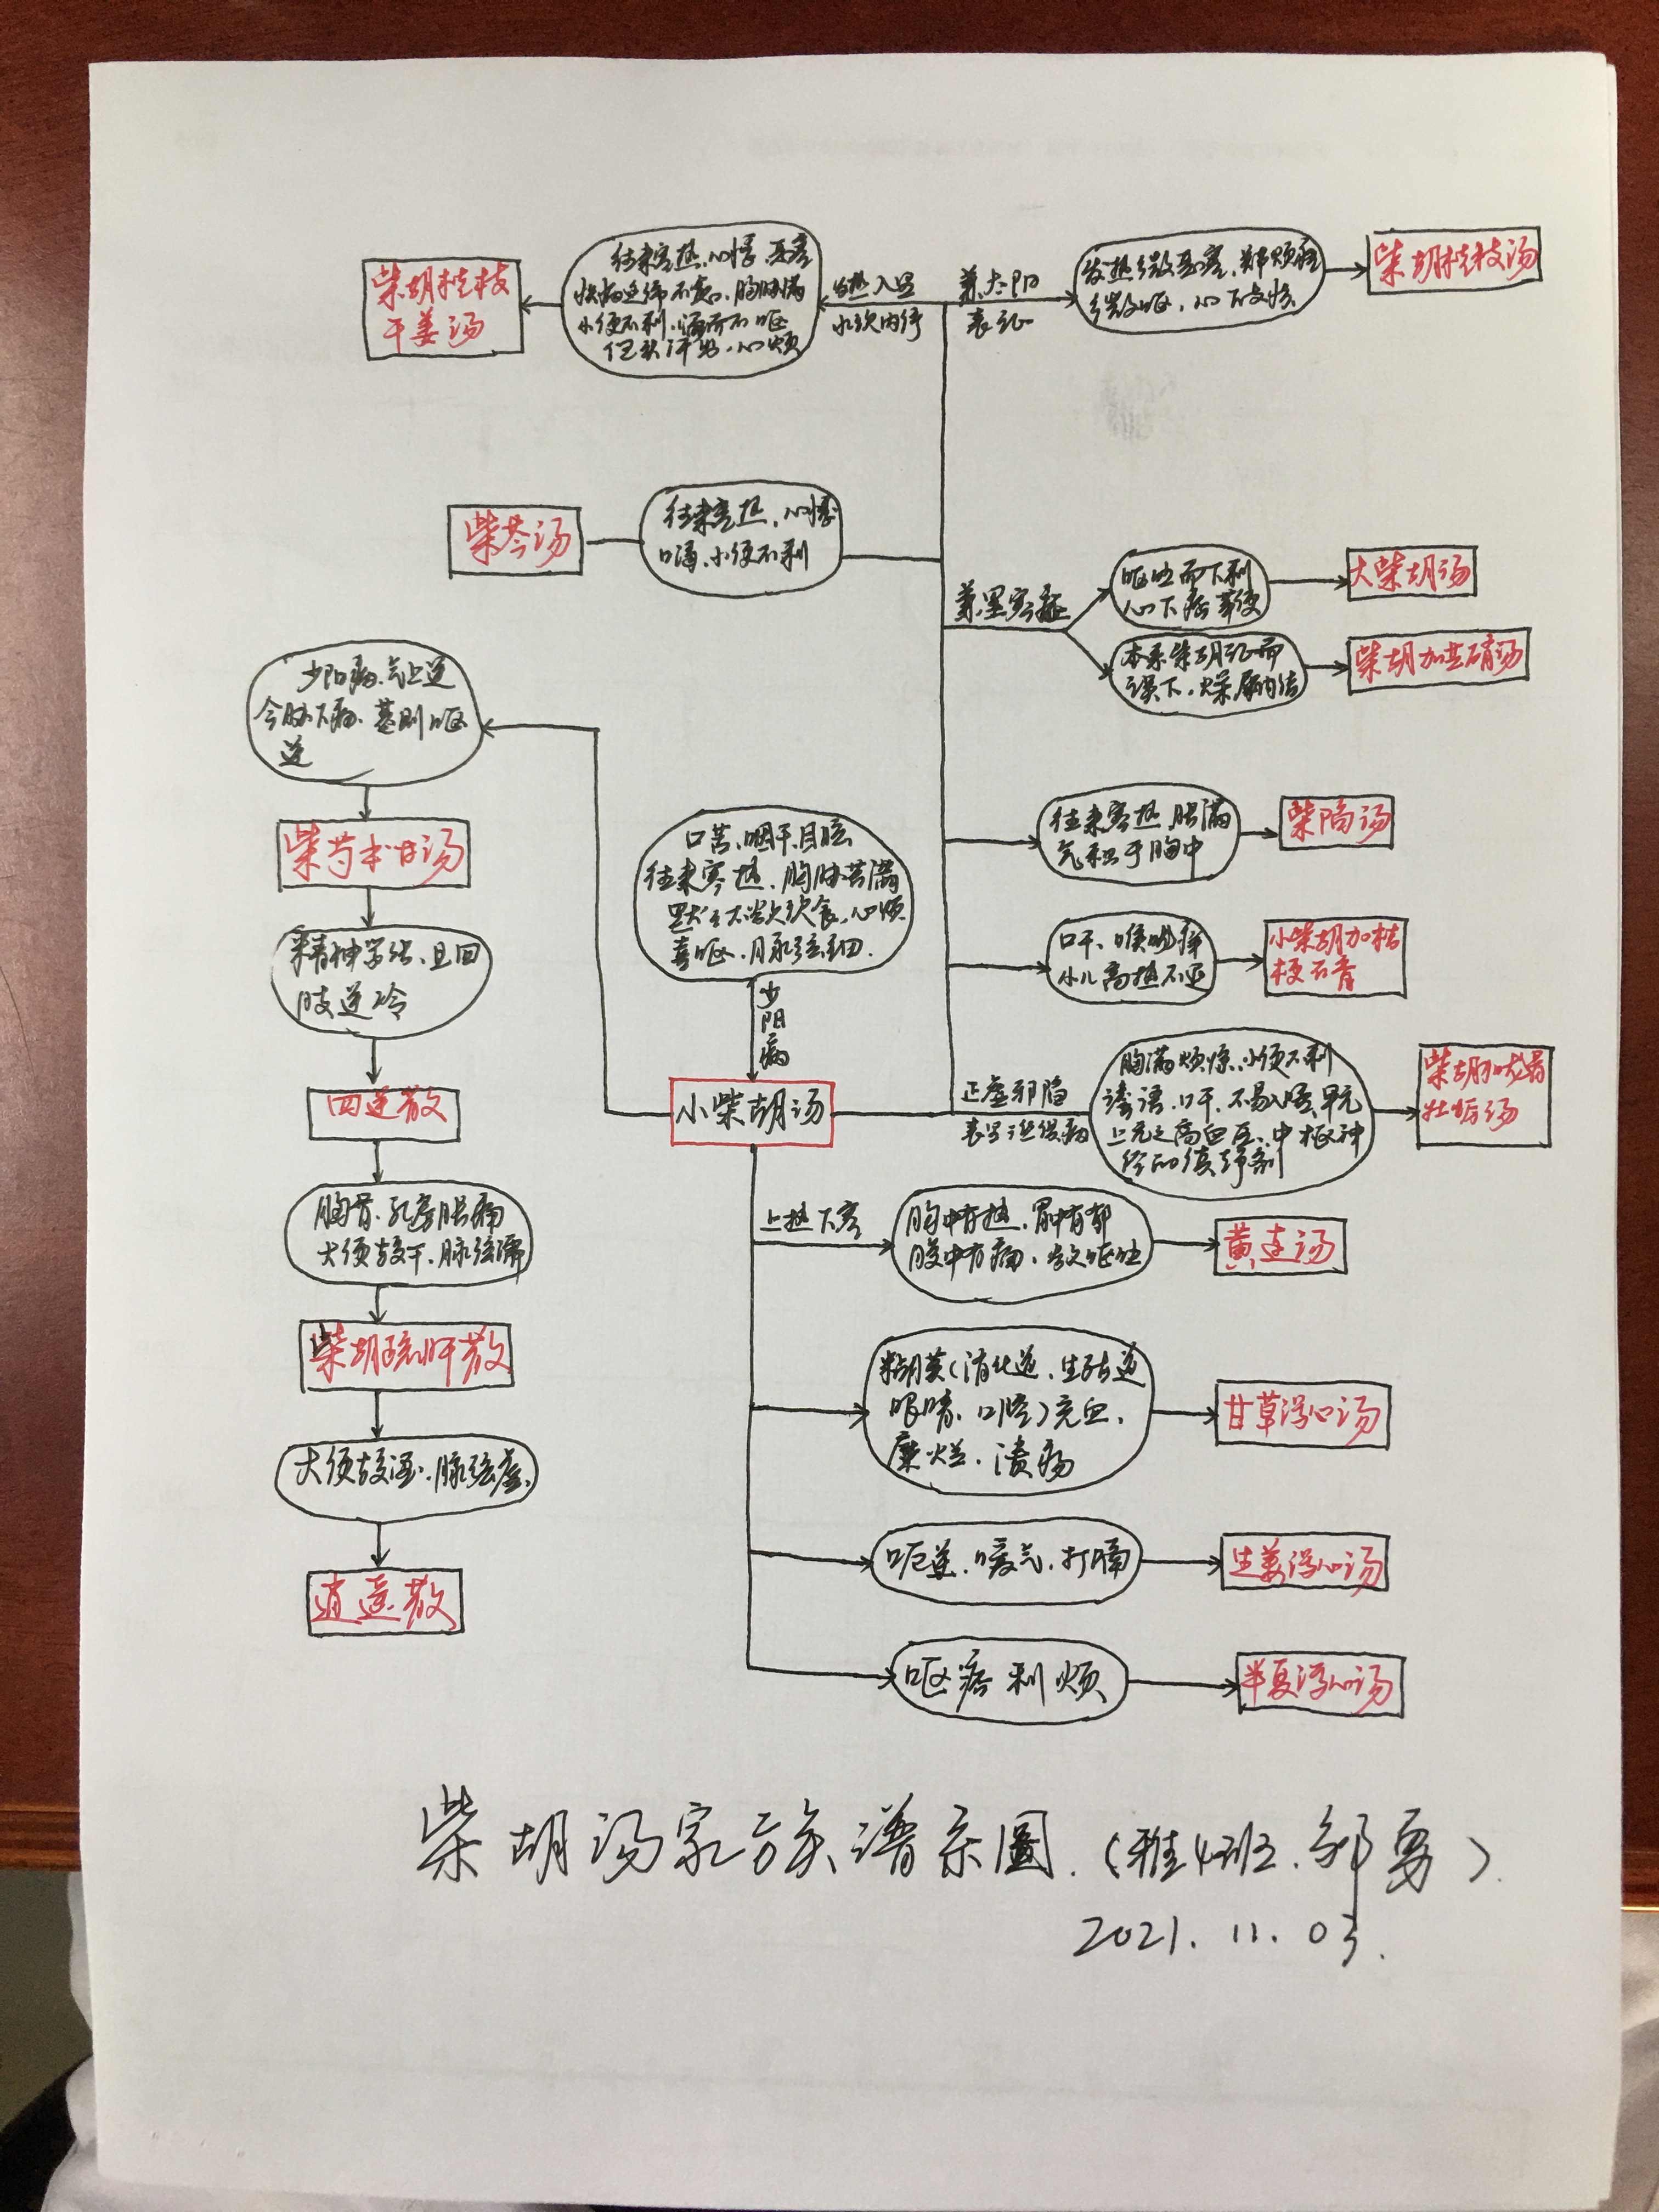 柴胡桂枝
干姜汤
往来寒热.心悸.恶寒
胸胁满
小便不利.渴而不呕
但头汗出.心烦
热入里
水饮内停
兼太阳
表证
发热微恶寒.
微呕.心下支结
柴胡桂枝汤
柴苓汤
往来寒热.心悸
口渴.小便不利
兼里实证
呕吐而下利
心下痞革便
大柴胡汤
本系柴胡证而
误下.燥屎内结
柴胡加芒硝汤
少阳病.气上逆
令胁下痛.甚则呕
逆
柴芍术甘汤
精神紧张.且四
肢逆冷
四逆散
胸骨.乳房胀痛
大便较干.脉弦滞
柴胡疏肝散
大便较湿.脉弦虚.
逍遥散
口苦.咽干.目眩
往来寒热.胸胁苦满
默々不欲饮食.心烦
喜呕.脉弦细.
少阳病
小柴胡汤
往来寒热.胀满
气积于胸中
柴陷汤
口干.喉咙痒
小儿高热不退
小柴胡加桔
梗石膏
正虚邪陷
表里
胸满烦惊.小便不利
谵语.口干.不易入睡.
上亢之高血压.中枢神
经的镇静剂
柴胡加龙骨
牡蛎汤
上热下寒
胸中有热.胃中有邪
腹中有痛.欲呕吐
黄连汤
粘膜(消化道.生殖道
眼睛.口腔)充血.
糜烂.溃疡
甘草泻心汤
呃逆.嗳气.打嗝
生姜泻心汤
呕痞利烦
半夏泻心汤
柴胡汤家族谱系圖.(雅4班.邹勇).
2021.11.03.